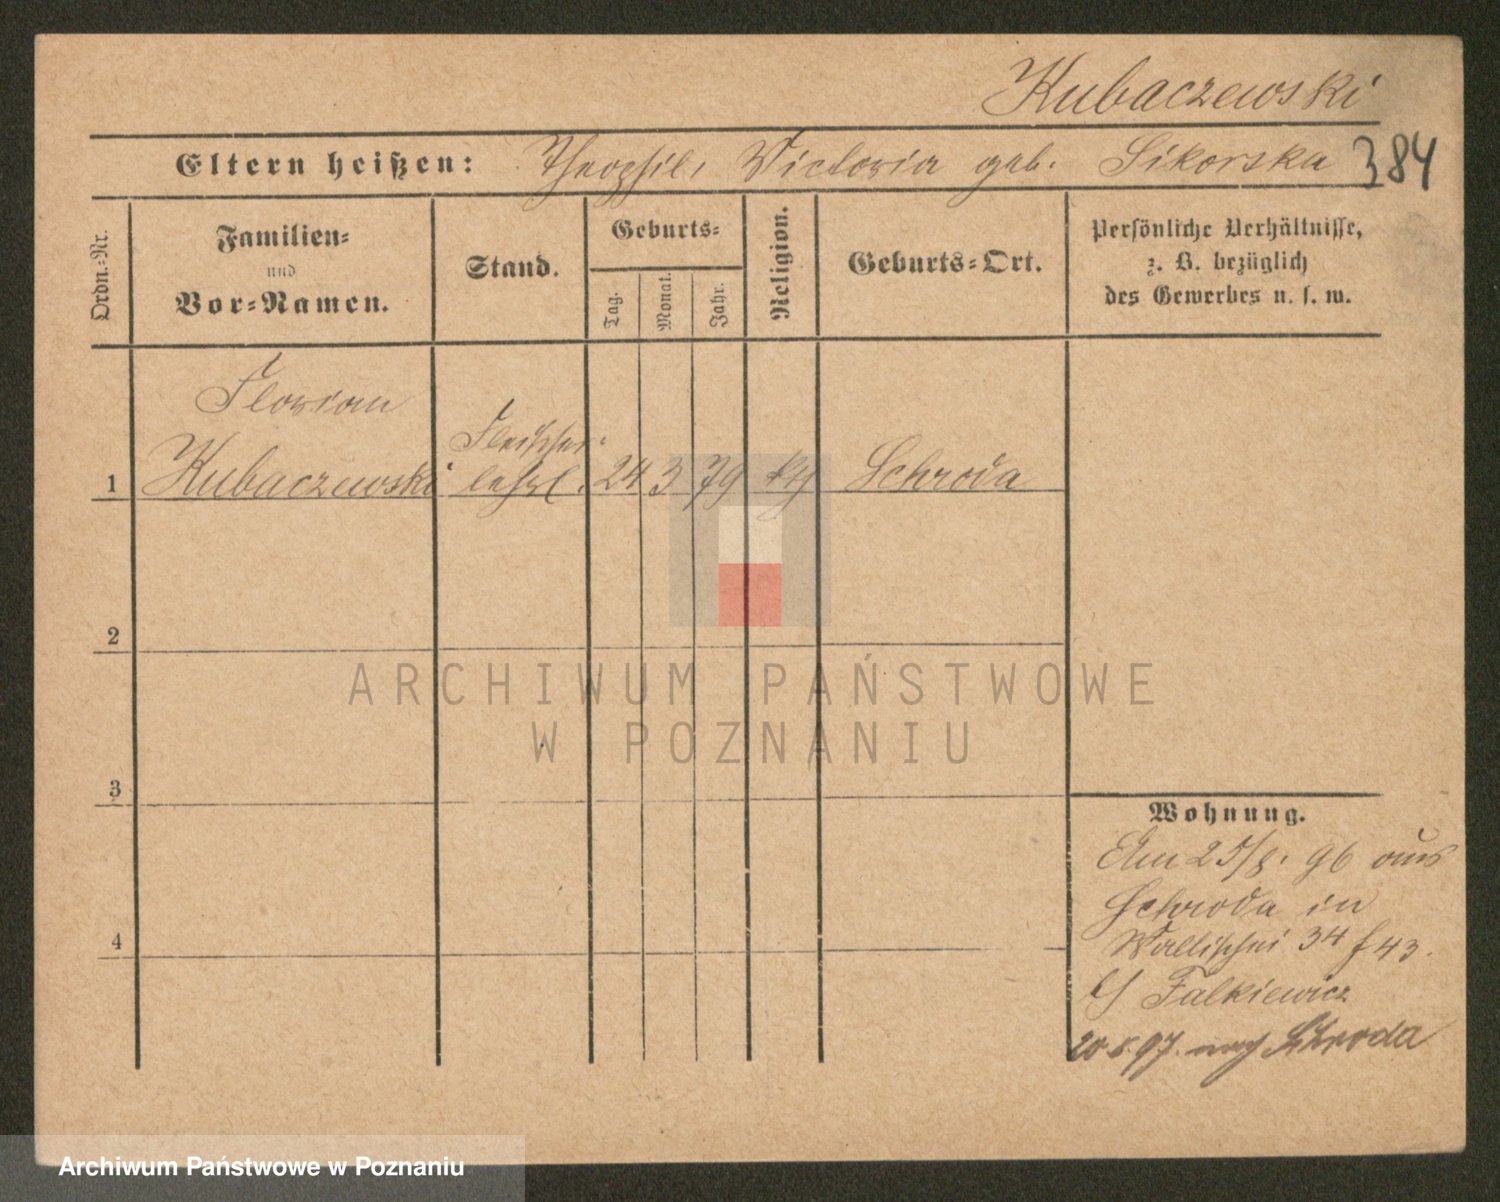 Kubaczewski
Eltern heißen: Theophil, Victoria geb. Sikorska 384
Ordn.=Nr.
Familien=
und
Vor=Namen.
Stand.
Geburts=
Tag.
Monat.
Jahr.
Religion.
Geburts=Ort.
Persönliche Verhältnisse,
z. B. bezüglich
des Gewerbes u. s. w.
Florian
1 Kubaczewski
Fleischer
lehrl. 24 3 79 kth Schroda
2
3
4
Wohnung.
Am 25/8. 96 aus
Schroda in
Wallischei 34 f 43.
b/ Falkiewicz
20.5.97. nach Schroda
ARCHIWUM PAŃSTWOWE
W POZNANIU
Archiwum Państwowe w Poznaniu